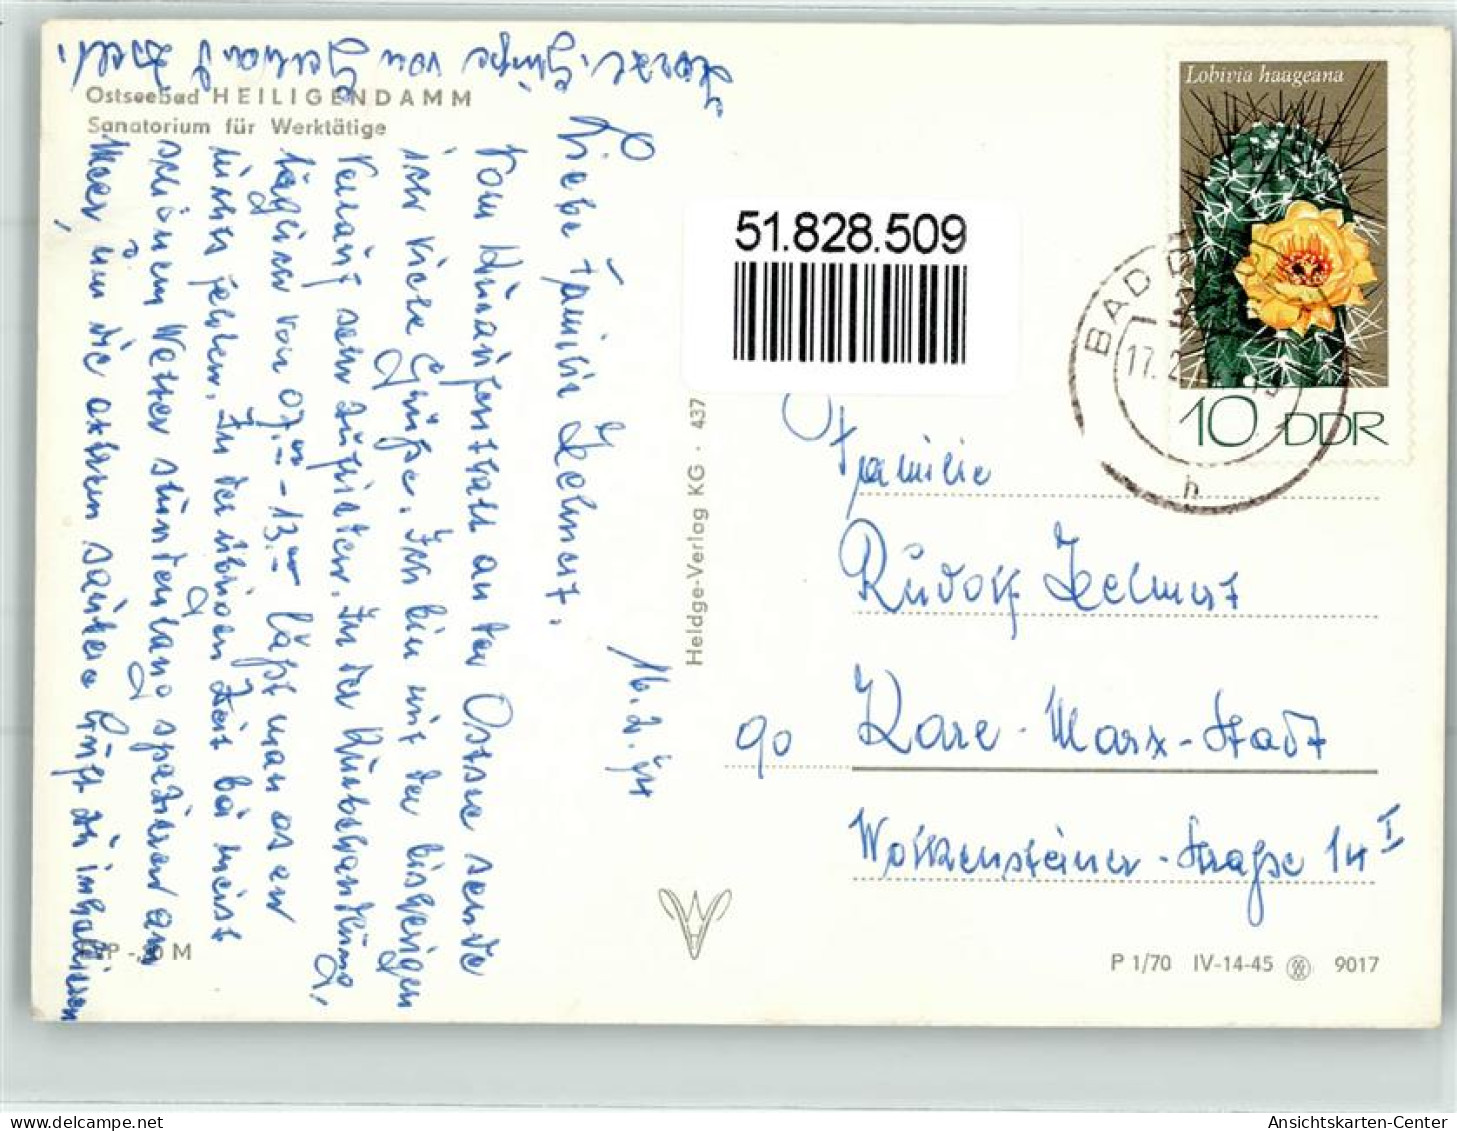 Ostseebad HEILIGENDAMM
Sanatorium für Werktätige
16.2.74
Liebe Familie
Vom Kuraufenthalt an der Ostsee sende
ich viele Grüße. Ich bin mit der bisherigen
Kur auf sehr zufrieden. In der Kurbehandlung,
täglich von 07.00 - 13.00 läßt man es an
nichts fehlen. In der übrigen Zeit bei meist
schönem Wetter stundenlang spazieren am
Meer, um die extrem saubere Luft zu inhalieren
Herzl. Grüße von
EVP -,20 M
Heldge-Verlag KG · 437
51.828.509
Lobivia haageana
10 DDR
BAD D
17.2.
h
Familie
Rudolf
90 Karl-Marx-Stadt
Wolkensteiner-Straße 14 I
P 1/70 IV-14-45 9017
Ansichtskarten-Center